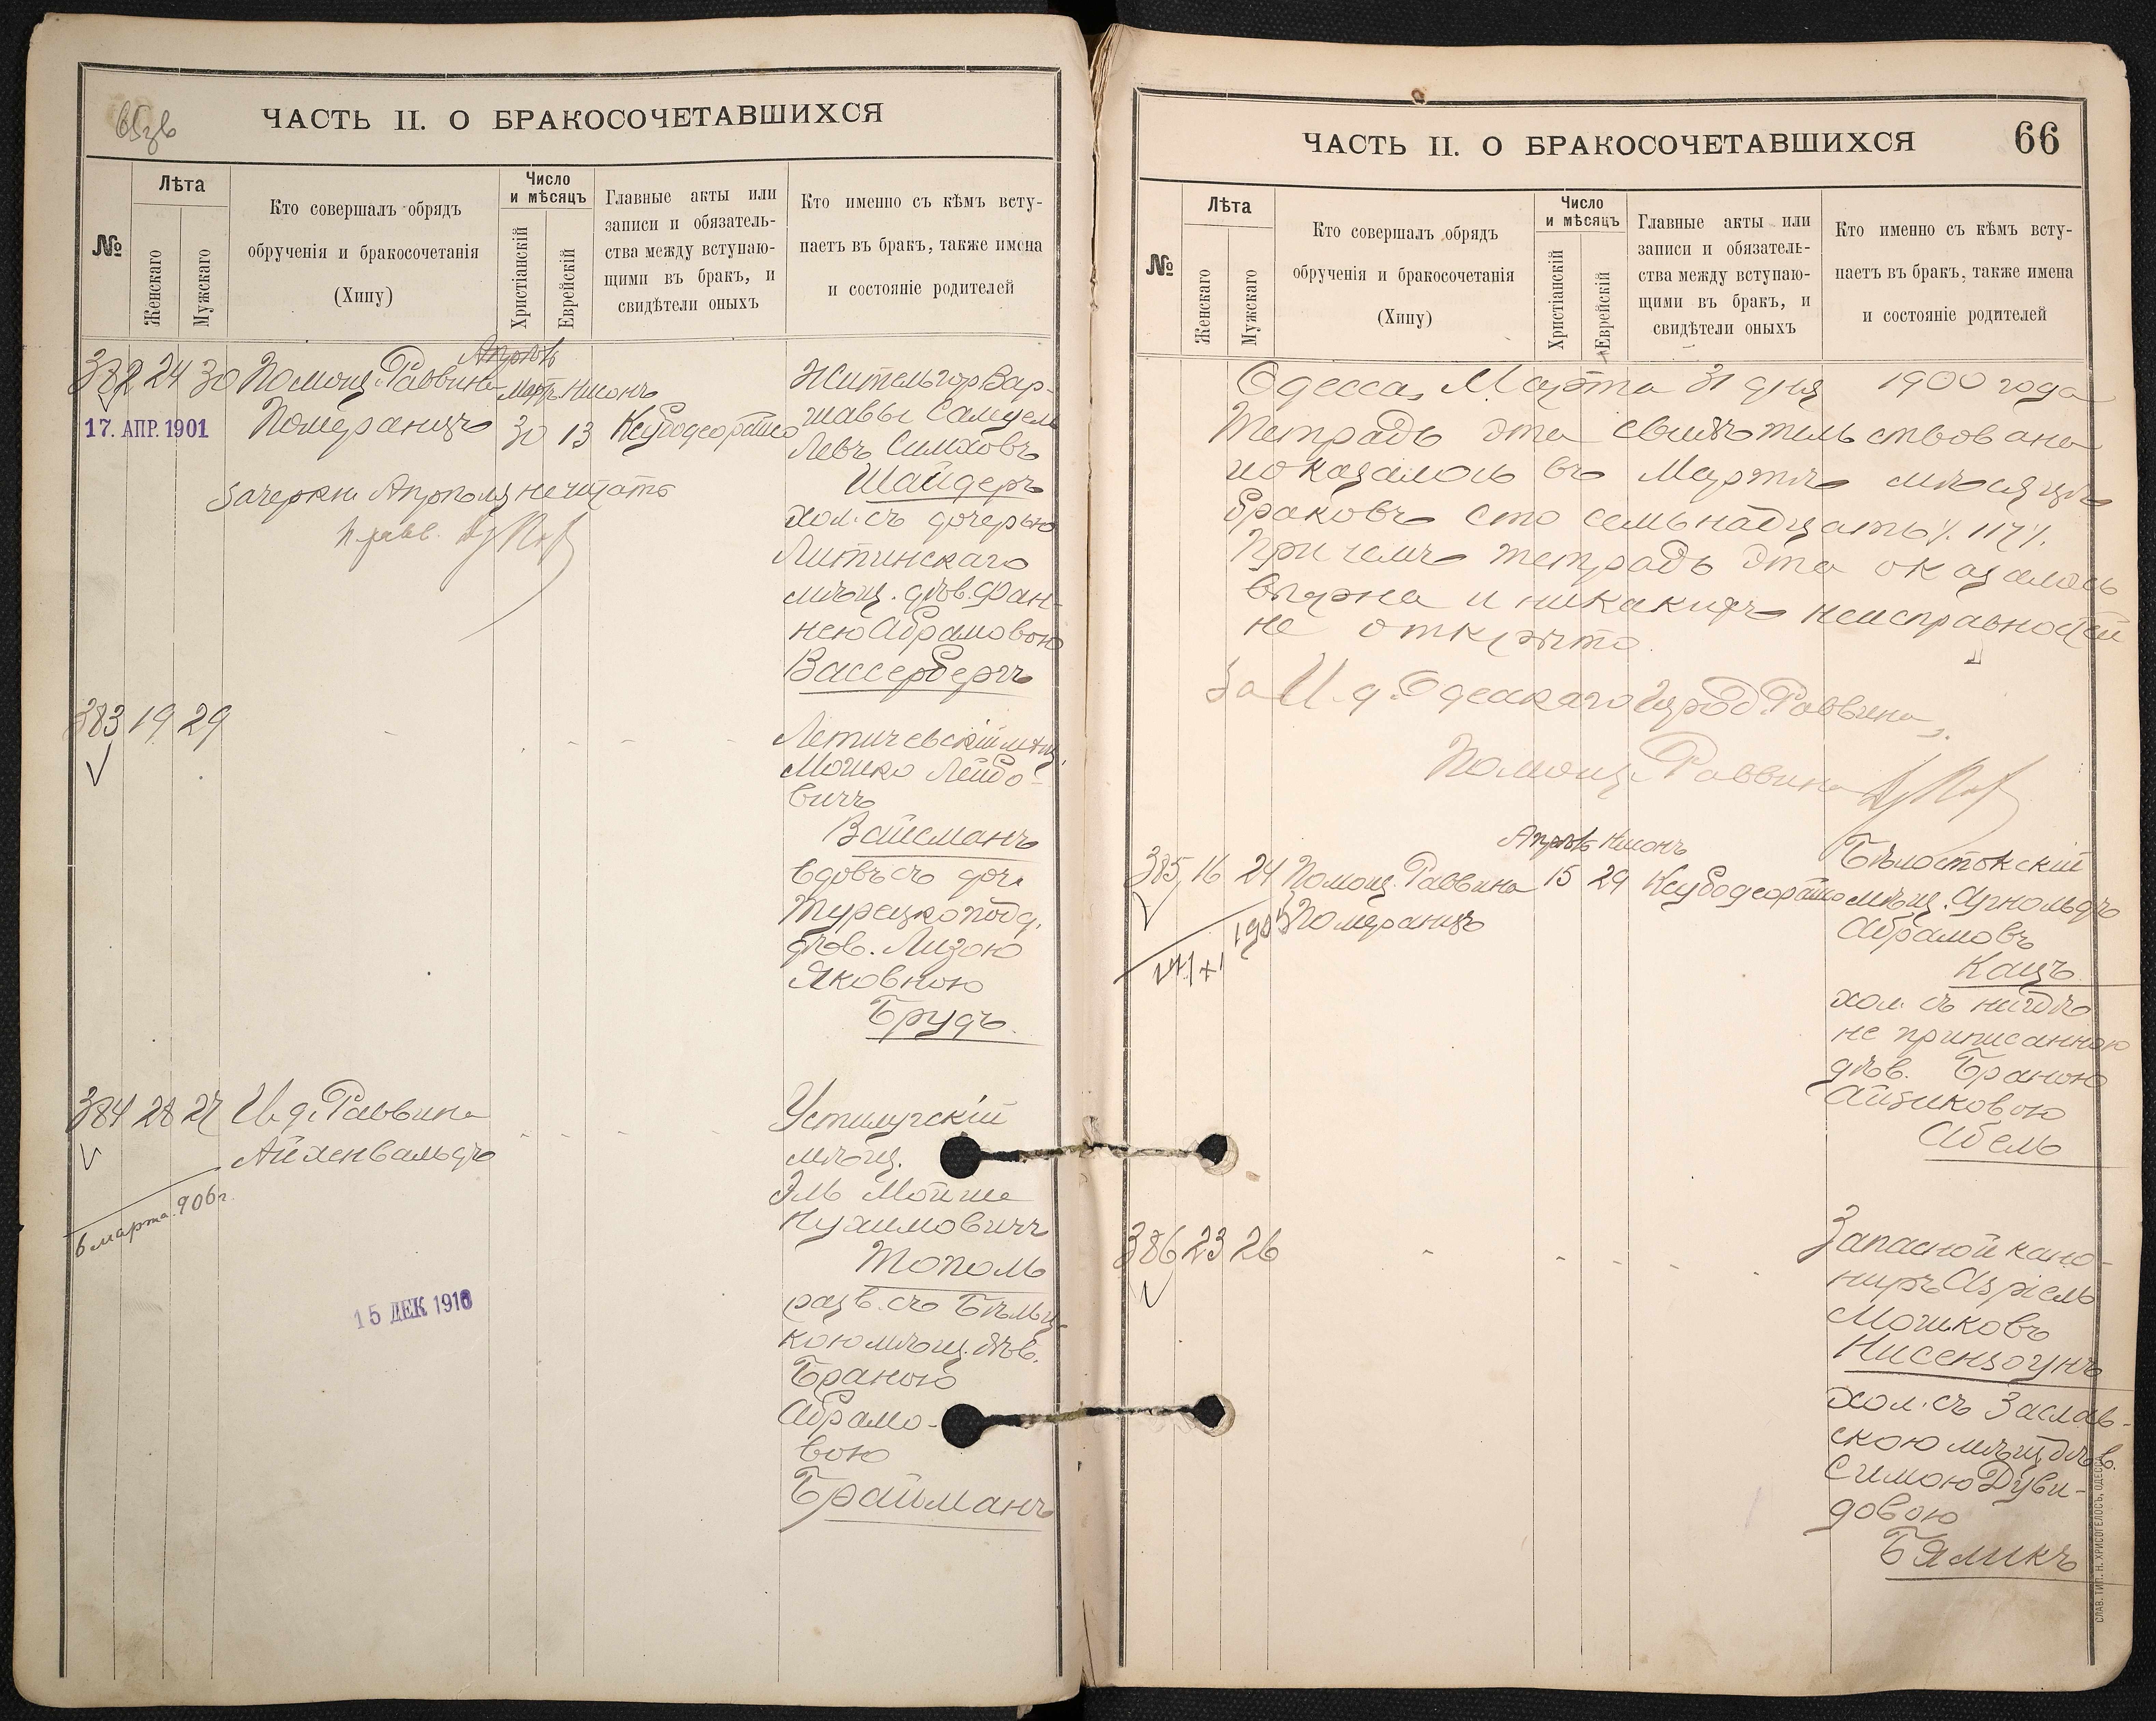 65зв
ЧАСТЬ II. О БРАКОСОЧЕТАВШИХСЯ
№
Лѣта
Женскаго
Мужскаго
Кто совершалъ обрядъ
обрученія и бракосочетанія
(Хипу)
Число
и мѣсяцъ
Христіанскій
Еврейскій
Главные акты или
записи и обязатель-
ства между вступаю-
щими въ бракъ, и
свидѣтели оныхъ
Кто именно съ кѣмъ всту-
паетъ въ бракъ, также имена
и состояніе родителей
Апрѣль
382 24 30 Помощ. Раввина Мартъ Нисонъ
17. АПР. 1901
Померанцъ 30 13
Зачеркн. Апрѣль не читать
Житель гор Вар-
шавы Самуель
Левъ Симховъ
Шайдеръ
хол. съ дочерью
Литинскаго
мѣщ. дѣв. Фан-
нею Абрамовою
Вассербергъ
383 19 29
Летичевскій мѣщ.
Мошко Лейбо-
вичъ
Вайсманъ
вдовъ съ доч.
Турецкопод.
дѣв. Лизою
Яковною
Брудъ
384 28 27 И. д. Раввина
Айхенвальдъ
6 марта 906 г.
15 ДЕК 1916
Устилугскій
мѣщ.
Эль Мойше
Нухимовичъ
Тополь
разв. съ Бѣльц-
кою мѣщ. дѣв.
Браною
Абрамо-
вою
Брайманъ
ЧАСТЬ II. О БРАКОСОЧЕТАВШИХСЯ
66
№
Лѣта
Женскаго
Мужскаго
Кто совершалъ обрядъ
обрученія и бракосочетанія
(Хипу)
Число
и мѣсяцъ
Христіанскій
Еврейскій
Главные акты или
записи и обязатель-
ства между вступаю-
щими въ бракъ, и
свидѣтели оныхъ
Кто именно съ кѣмъ всту-
паетъ въ бракъ, также имена
и состояніе родителей
Одесса, Марта 31 дня 1900 года
Тетрадь эта свидѣтельствована
и оказалось въ Мартѣ мѣсяцѣ
браковъ сто семьнадцать /. 117 /.
При чемъ тетрадь эта оказалось
вѣрна и никакихъ неисправностей
не открыто
За И. д. Одесскаго Город. Раввина,
Помощ. Раввина
Апрѣль Нисонъ
385 16 24 Помощ. Раввина 15 29 Ксубодеорайсо
Померанцъ
Бѣлостокскій
мѣщ. Арнольдъ
Абрамовъ
Кацъ
хол. съ нигдѣ
не приписанною
дѣв. Браною
Айзиковою
Абель
386 23 26
Запасной кано-
ниръ Азріель
Мошковъ
Нисензонъ
хол. съ Заслав-
скою мѣщ. дѣв.
Симою Дуви-
довою
Бяликъ
СЛАВ. ТИП. Н. ХРИСОГЕЛОСЪ, ОДЕССА